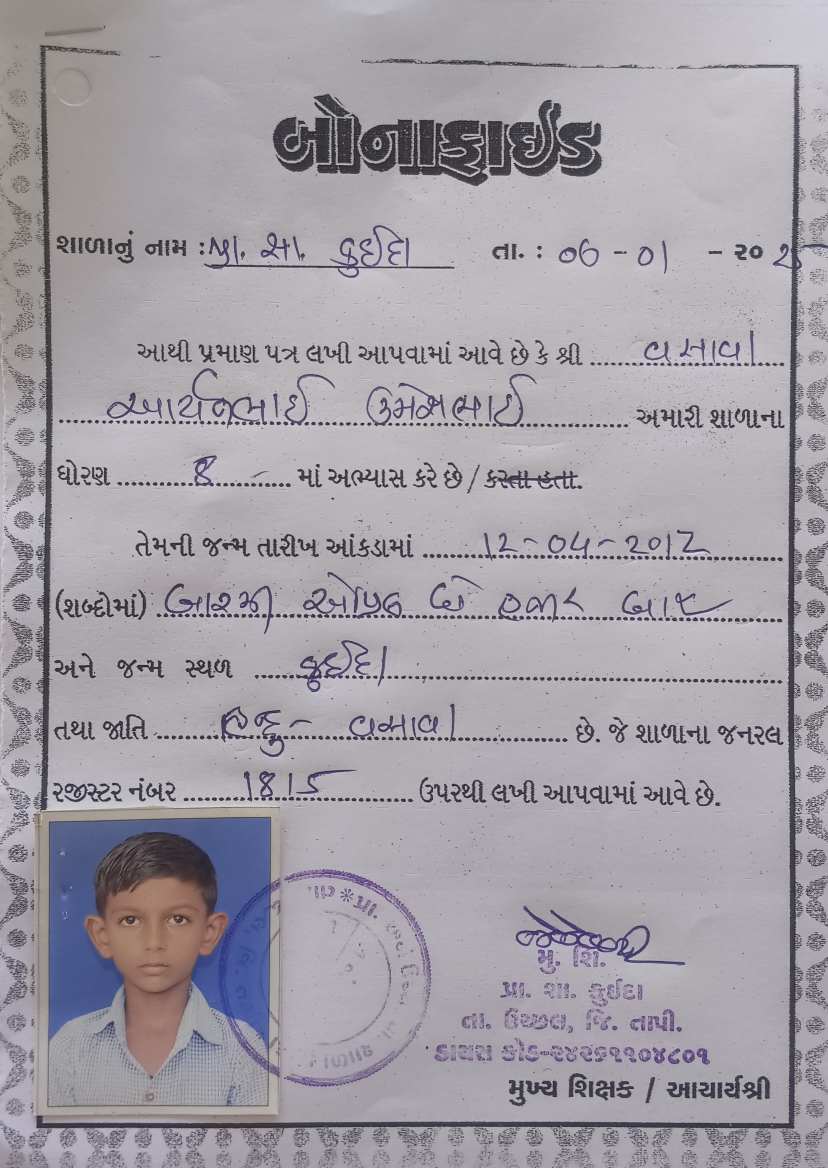 બોનાફાઈડ
શાળાનું નામ : પ્રા. શા. કુઈદા તા. : 06 - 01 - ૨૦ 25
આથી પ્રમાણ પત્ર લખી આપવામાં આવે છે કે શ્રી વસાવા
આર્યનભાઈ ઉમેશભાઈ અમારી શાળાના
ધોરણ 8 માં અભ્યાસ કરે છે / કરતા હતા.
તેમની જન્મ તારીખ આંકડામાં 12-04-2012
(શબ્દોમાં) બારમી એપ્રિલ બે હજાર બાર
અને જન્મ સ્થળ કુઈદા
તથા જાતિ હિન્દુ - વસાવા છે. જે શાળાના જનરલ
રજીસ્ટર નંબર 1815 ઉપરથી લખી આપવામાં આવે છે.
મુ. શિ.
પ્રા. શા. કુઈદા
તા. ઉચ્છલ, જિ. તાપી.
ડાયસ કોડ-૨૪૨૬૧૧૦૪૮૦૧
મુખ્ય શિક્ષક / આચાર્યશ્રી